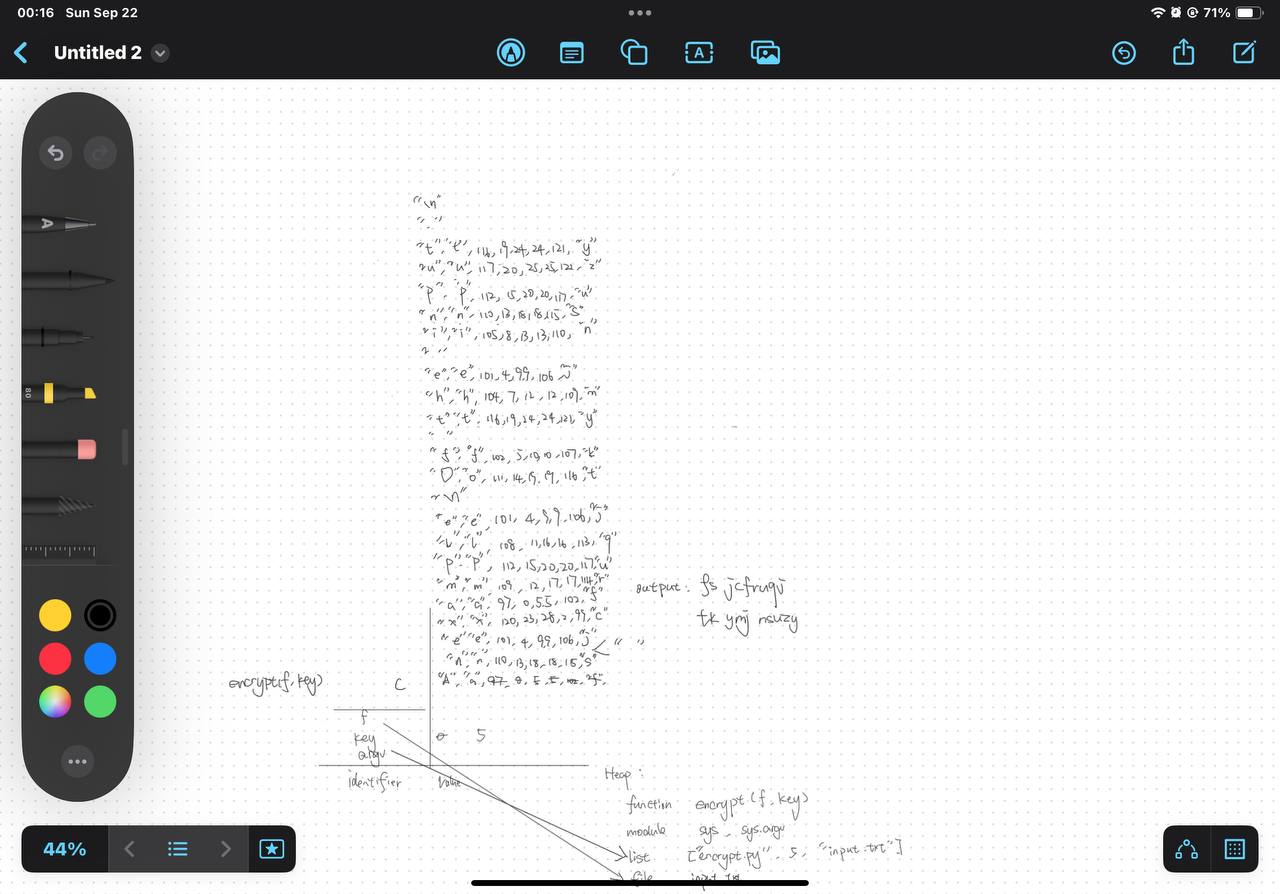 00:16 Sun Sep 22
71%
Untitled 2
A
A
80
"\n"
" "
"t", "t", 116, 19, 24, 24, 121, "y"
"u", "u", 117, 20, 25, 25, 122, "z"
"p", "p", 112, 15, 20, 20, 117, "u"
"n", "n", 110, 13, 18, 18, 115, "s"
"i", "i", 105, 8, 13, 13, 110, "n"
" "
"e", "e", 101, 4, 9, 9, 106, "j"
"h", "h", 104, 7, 12, 12, 109, "m"
"t", "t", 116, 19, 24, 24, 121, "y"
" "
"f", "f", 102, 5, 10, 10, 107, "k"
"O", "o", 111, 14, 19, 19, 116, "t"
"\n"
"e", "e", 101, 4, 9, 9, 106, "j"
"l", "l", 108, 11, 16, 16, 113, "q"
"p", "p", 112, 15, 20, 20, 117, "u"
"m", "m", 109, 12, 17, 17, 114, "r"
"a", "a", 97, 0, 5, 5, 102, "f"
"x", "x", 120, 23, 28, 2, 99, "c"
"e", "e", 101, 4, 9, 9, 106, "j"
< " "
"n", "n", 110, 13, 18, 18, 115, "s"
"A", "a", 97, 0, 5, 5, 102, "f",
output: fs jcfruqj
tk ymj nsuzy
encrypt(f, key)
C
f
key 0 5
argv
identifier value
Heap:
function encrypt (f, key)
module sys, sys.argv
list ["encrypt.py", 5, "input.txt"]
file input.txt
44%